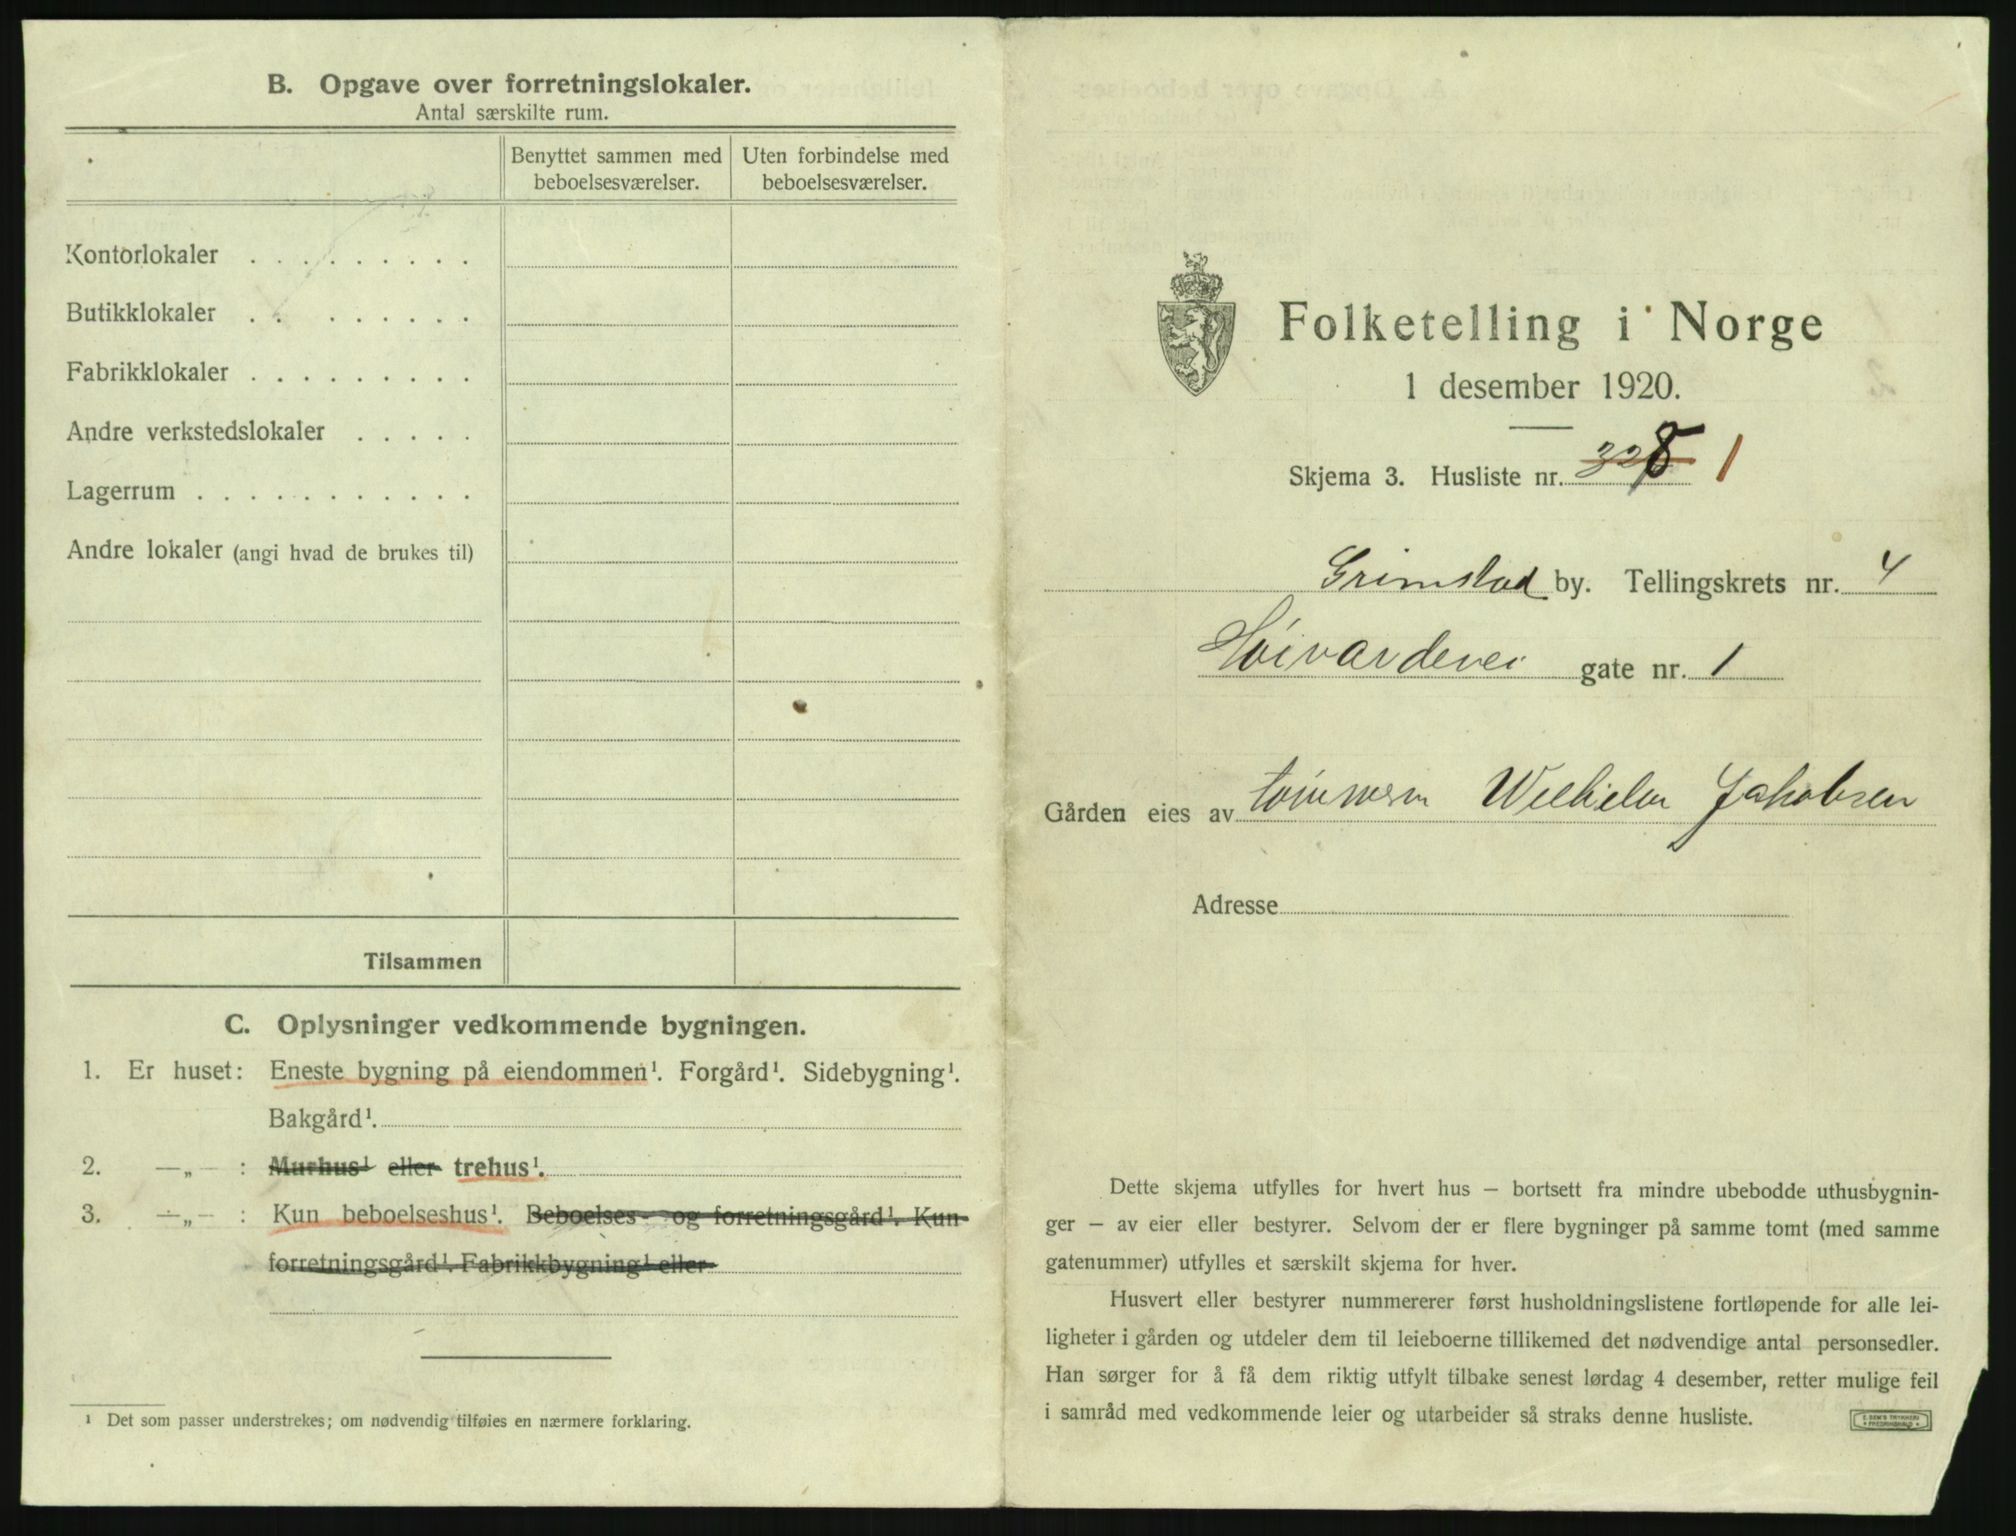 B. Opgave over forretningslokaler.
Antal særskilte rum.
Benyttet sammen med beboelsesværelser.
Uten forbindelse med beboelsesværelser.
Kontorlokaler . . . . . . . . .
Butikklokaler . . . . . . . .
Fabrikklokaler . . . . . . . . .
Andre verkstedslokaler . . . . .
Lagerrum . . . . . . . . . . . .
Andre lokaler (angi hvad de brukes til)
Tilsammen
C. Oplysninger vedkommende bygningen.
1. Er huset: Eneste bygning på eiendommen¹. Forgård¹. Sidebygning¹.
Bakgård¹.
2. —„— : Murhus¹ eller trehus¹.
3. —„— : Kun beboelseshus¹. Beboelses- og forretningsgård¹. Kun
forretningsgård¹. Fabrikkbygning¹ eller
¹ Det som passer understrekes; om nødvendig tilføies en nærmere forklaring.
Folketelling i Norge
1 desember 1920.
Skjema 3. Husliste nr. 1
Grimstad by. Tellingskrets nr. 4
Høivardevei gate nr. 1
Gården eies av tømmerm Wilhelm Jakobsen
Adresse
Dette skjema utfylles for hvert hus – bortsett fra mindre ubebodde uthusbygnin-
ger – av eier eller bestyrer. Selvom der er flere bygninger på samme tomt (med samme
gatenummer) utfylles et særskilt skjema for hver.
Husvert eller bestyrer nummererer først husholdningslistene fortløpende for alle lei-
ligheter i gården og utdeler dem til leieboerne tillikemed det nødvendige antal personsedler.
Han sørger for å få dem riktig utfylt tilbake senest lørdag 4 desember, retter mulige feil
i samråd med vedkommende leier og utarbeider så straks denne husliste.
E. SEM'S TRYKKERI
FREDRIKSHALD